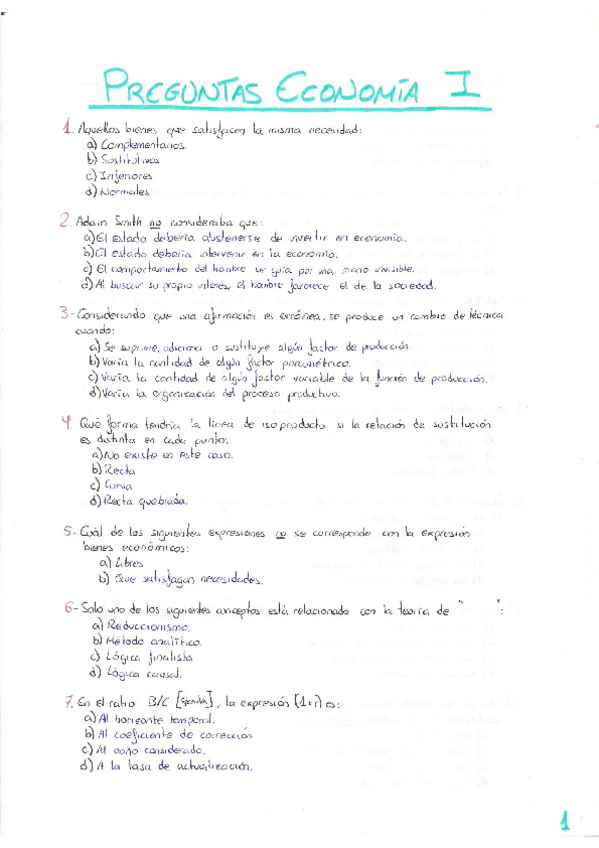 PREGUNTAS ECONOMÍA I
1. Aquellos bienes que satisfacen la misma necesidad:
a) Complementarios.
b) Sustitutivos
c) Inferiores
d) Normales
2. Adam Smith no consideraba que:
a) El estado debería abstenerse de invertir en economía.
b) El estado debería intervenir en la economía.
c) El comportamiento del hombre se guía por una mano invisible.
d) Al buscar su propio interés, el hombre favorece el de la sociedad.
3- Considerando que una afirmación es errónea, se produce un cambio de técnica
cuando:
a) Se suprime, adiciona o sustituye algún factor de producción.
b) Varía la cantidad de algún factor paramétrico.
c) Varía la cantidad de algún factor variable de la función de producción.
d) Varía la organización del proceso productivo.
4. Qué forma tendría la línea de isoproducto si la relación de sustitución
es distinta en cada punto:
a) No existe en este caso.
b) Recta
c) Curva
d) Recta quebrada.
5- Cuál de las siguientes expresiones no se corresponde con la expresión
bienes económicos:
a) Libres
b) Que satisfagan necesidades.
6- Solo uno de los siguientes conceptos está relacionado con la teoría de " ":
a) Reduccionismo.
b) Método analítico.
c) Lógica finalista
d) Lógica causal.
7. En el ratio B/C , la expresión (1+r) es:
a) Al horizonte temporal.
b) Al coeficiente de corrección
c) Al año considerado.
d) A la tasa de actualización.
1